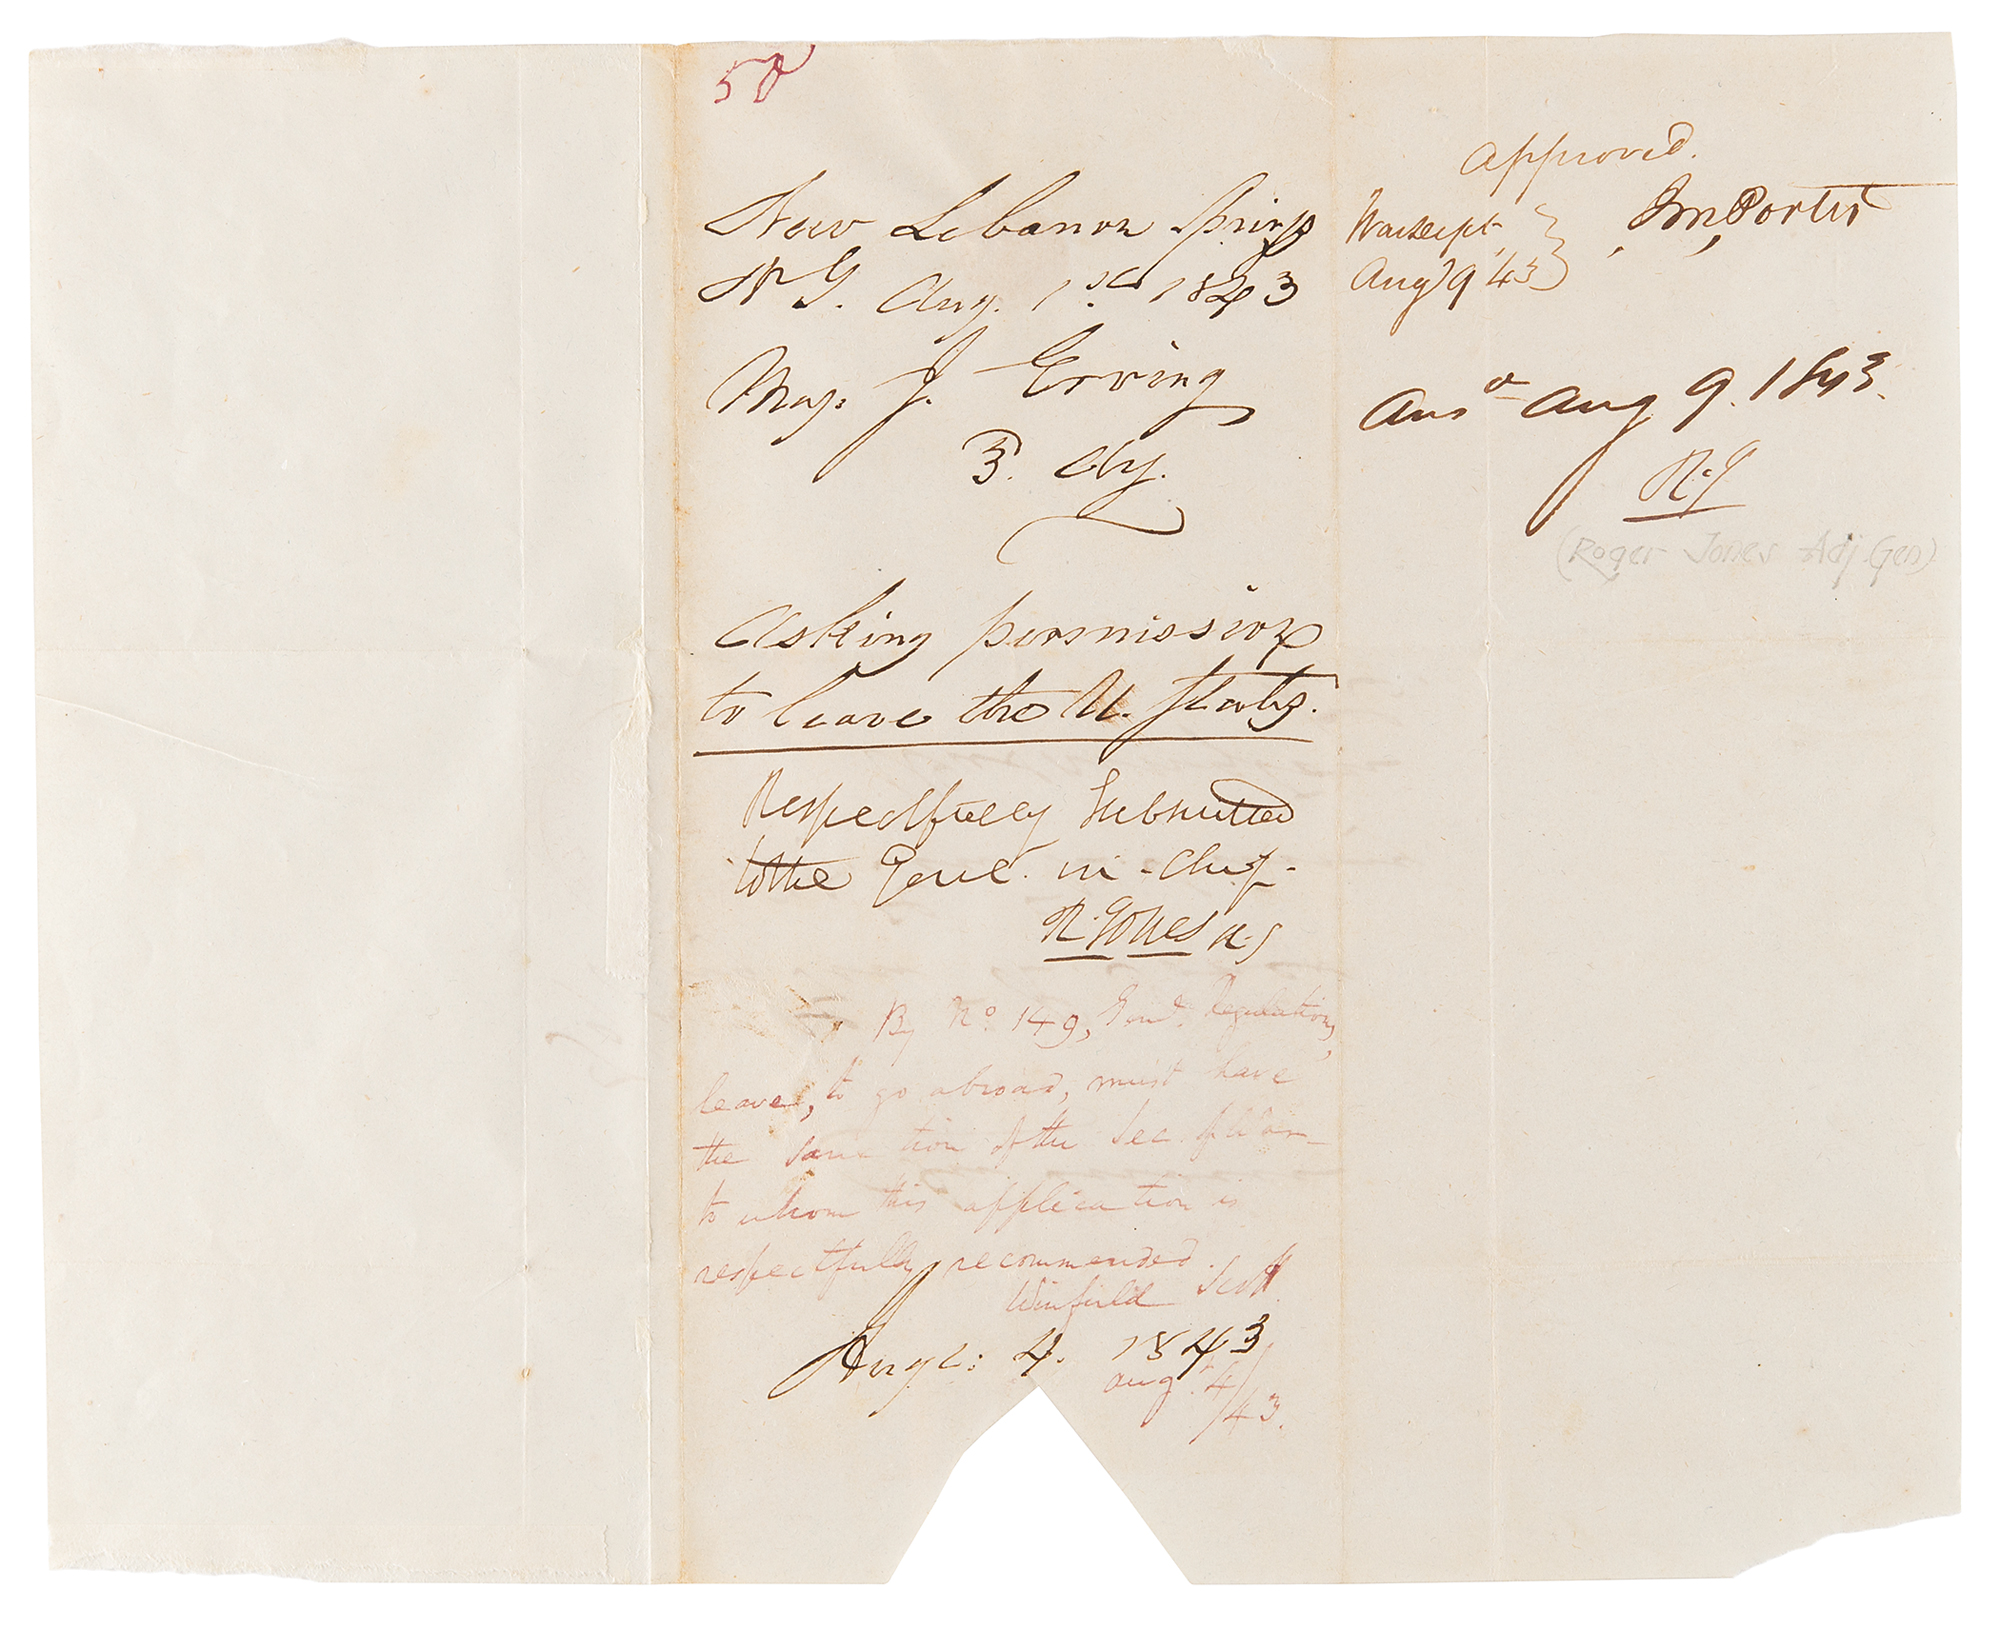 58
New Lebanon Springs
N Y. Aug. 1st 1843
Maj. J. Erving
3. Arty.
Asking permission
to leave the U. States.
Respectfully Submitted
to the Genl. in-Chief-
R. Jones A.G
By No. 149, Genl. Regulations,
leave, to go abroad, must have
the sanction of the Sec. of War
to whom this application is
respectfully recommended.
Winfield Scott
Augt: 4. 1843
Aug. 4/43.
Approved.
War Dept
Aug 9 '43
J M Porter
Ansd Aug 9. 1843.
R.J
(Roger Jones Adj Gen)